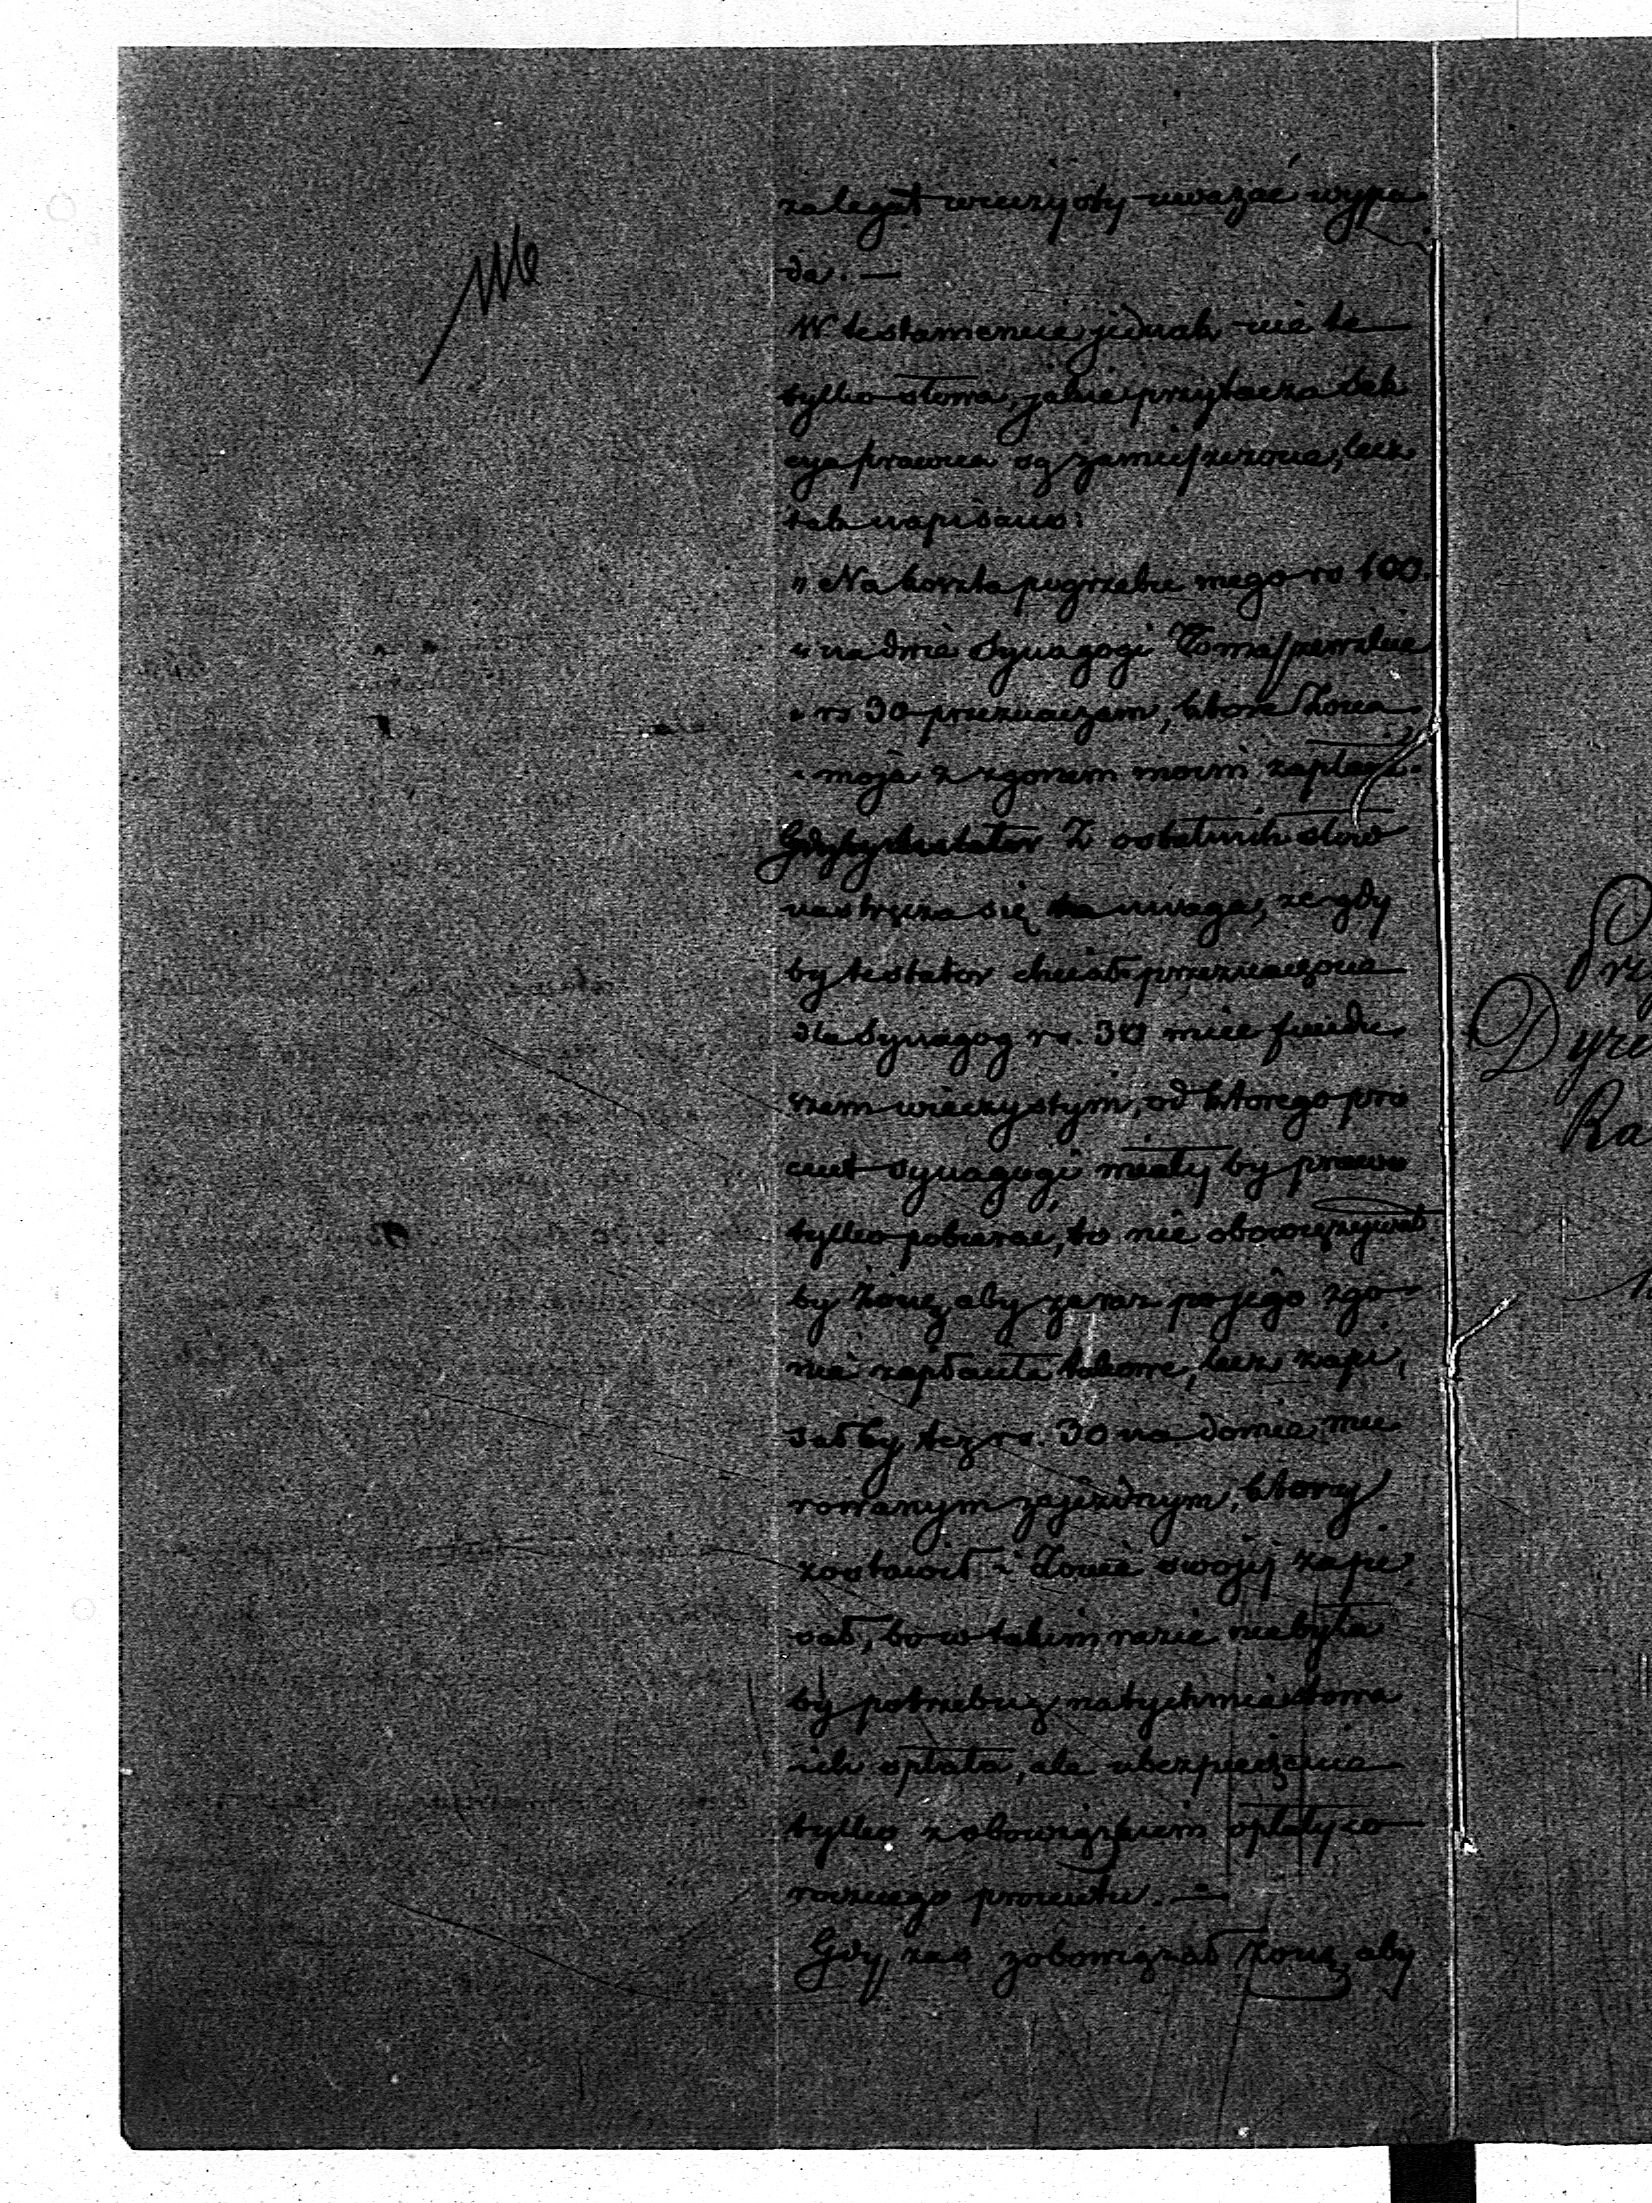 za legat wieczysty uważać wypa
da. —
W testamencie jednak nie te
tylko słowa, jakie przytacza Sek
cya prawna są zamieszczone, lecz
tak napisano:
„ Na koszta pogrzebu mego rs 100.
„ na dwie Synagogi Tomaszewskie
„ rs 30 przeznaczam, które Żona
„ moja z zgonem moim zapłaci.
Z ostatnich słów
nastręcza się uwaga, że gdy
by testator chciał przeznaczone
dla Synagog rs. 30 mieć fundu
szem wieczystym, od którego pro
cent Synagogi miały by prawo
tylko pobierać, to nie obowiązywał
by Żonę, aby zaraz po jego zgo-
nie zapłaciła takowe, lecz zapi,
sał by też rs. 30 na domie mu
rowanym zajezdnym, który
zostawił i Żonie swojej zapi
sał, bo w takim razie niebyła
by potrzebną natychmiastowa
ich opłata, ale ubezpieczenie
tylko z obowiązkiem opłaty co
rocznego procentu. —
Gdy zaś zobowiązał Żonę, aby
Dyre
Ra